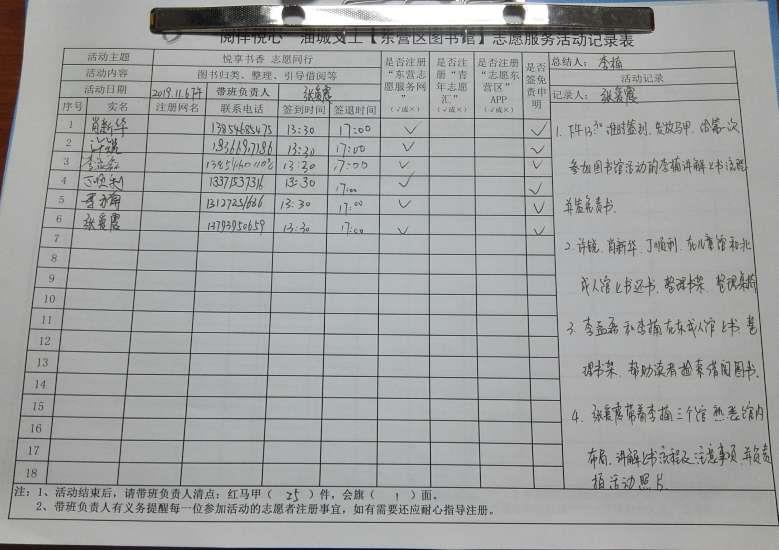 阅伴悦心 油城义工【东营区图书馆】志愿服务活动记录表
活动主题 悦享书香 志愿同行
活动内容 图书归类、整理、引导借阅等
活动日期 2019.11.6下午 带班负责人 张爱霞
序号 实名 注册网名 联系电话 签到时间 签退时间 是否注册“东营志愿服务网”（√或×） 是否注册“青年志愿汇”（√或×） 是否注册“志愿东营区”APP（√或×） 是否签免责申明
1 肖新华 13854685475 13:30 17:00 √ √
2 许锐 13:30 17:00 √ √
3 李孟磊 13:30 17:00 √ √
4 丁顺利 13371537316 13:30 17:00 √ √
5 李楠 13:30 17:00 √ √
6 张爱霞 13793950659 13:30 17:00 √ √
7
8
9
10
11
12
13
14
15
16
17
18
总结人：李楠
活动记录
记录人：张爱霞
1. 下午13:30准时签到，发放马甲，给第一次
参加图书馆活动的李楠讲解上书流程
并签免责书。
2. 许锐、肖新华、丁顺利、在儿童馆和北
成人馆上书还书、整理书架、整理桌椅
3. 李孟磊和李楠在东成人馆上书、整
理书架、帮助读者检索借阅图书。
4. 张爱霞带着李楠三个馆熟悉馆内
布局、讲解上书流程及注意事项、并负责
拍活动照片
注：1、活动结束后，请带班负责人清点：红马甲（ 25 ）件，会旗（ 1 ）面。
2、带班负责人有义务提醒每一位参加活动的志愿者注册事宜，如有需要还应耐心指导注册。